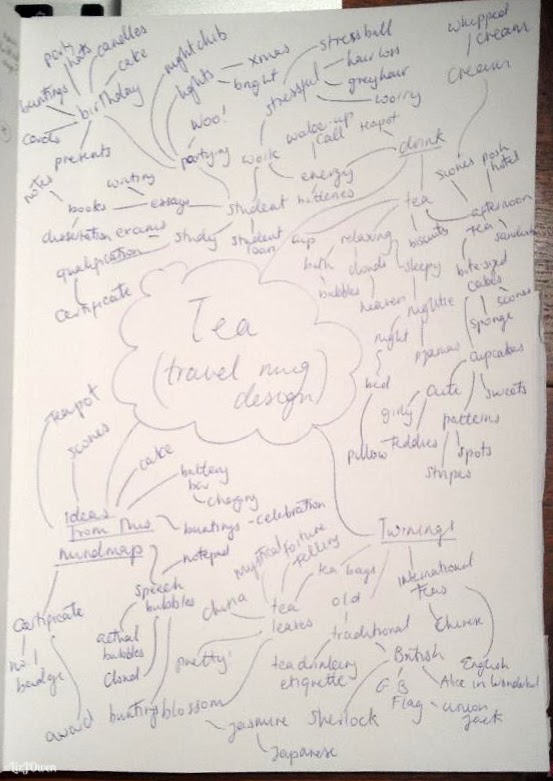 party
hats
candles
cake
buntings
birthday
cards
presents
nightclub
lights
xmas
bright
stressball
hair loss
stressful
grey hair
worry
whipped
cream
cream
woo!
partying
work
wake-up
call
teapot
drink
energy
scones
posh
hotel
notes
writing
books
essays
student
tea
afternoon
tea
dissertation
exams
study
student
loan
cup
relaxing
biscuits
qualification
certificate
bath
clouds
sleepy
bite-sized
cakes
bubbles
heaven
nightie
scones
sponge
night
pyjamas
cupcakes
bed
cute
sweets
girly
patterns
pillow
teddies
spots
stripes
Tea
(travel mug
design)
teapot
scones
cake
battery
bar
charging
ideas
from this
mindmap
buntings - celebration
notepad
Twinings
mystical
fortune
telling
tea bags
international
teas
speech
bubbles
china
tea
leaves
old
traditional
Chinese
certificate
no.1
badge
actual
bubbles
cloud
pretty
tea drinking
etiquette
British
English
Alice in Wonderland
GB
Flag
union
jack
award
bunting
blossom
jasmine
Japanese
Sherlock